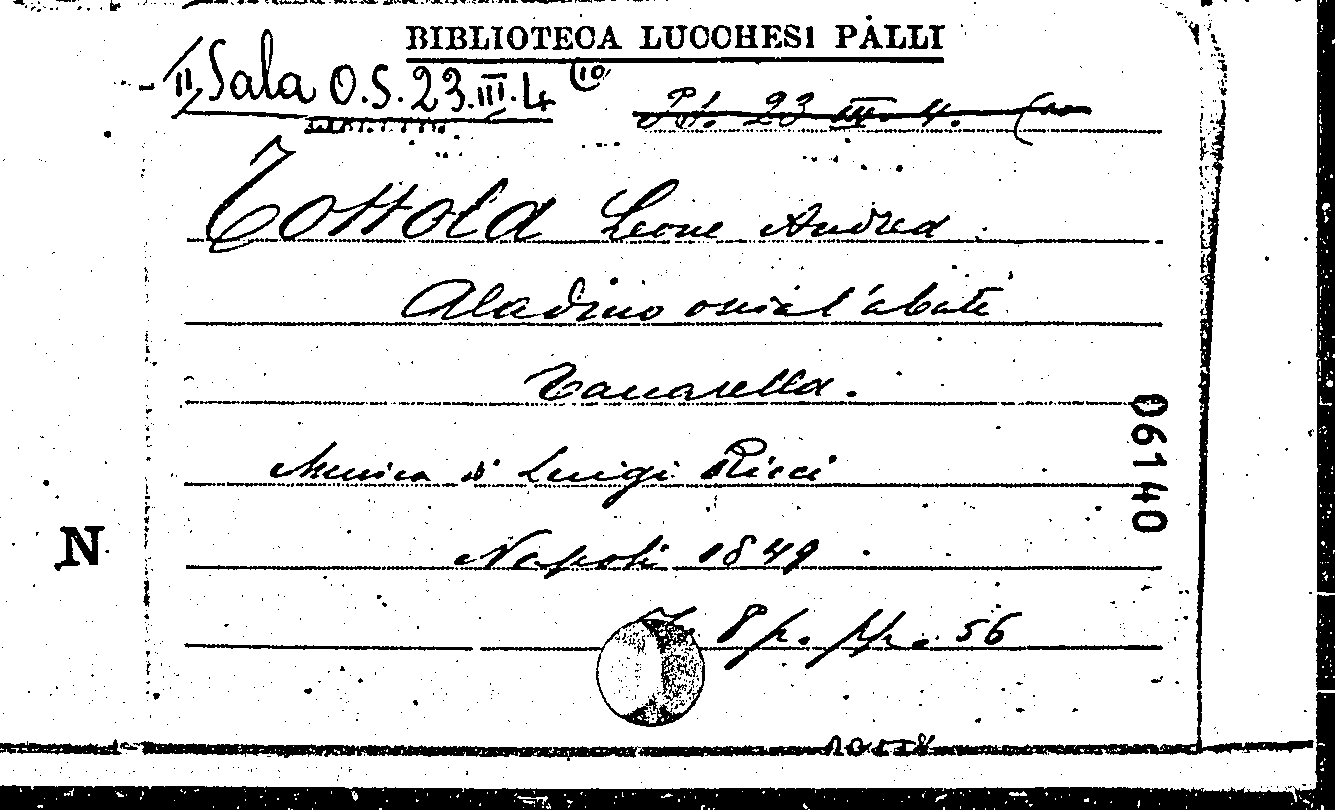 BIBLIOTECA LUCCHESI PALLI
II Sala O.S. 23.III.4 (10
23 III. 4. (10
Tottola Leone Andrea.
Aladino ossia l'abate
Taccarella.
Musica di Luigi Ricci
Napoli 1849
8p. pp. 56
06140
N